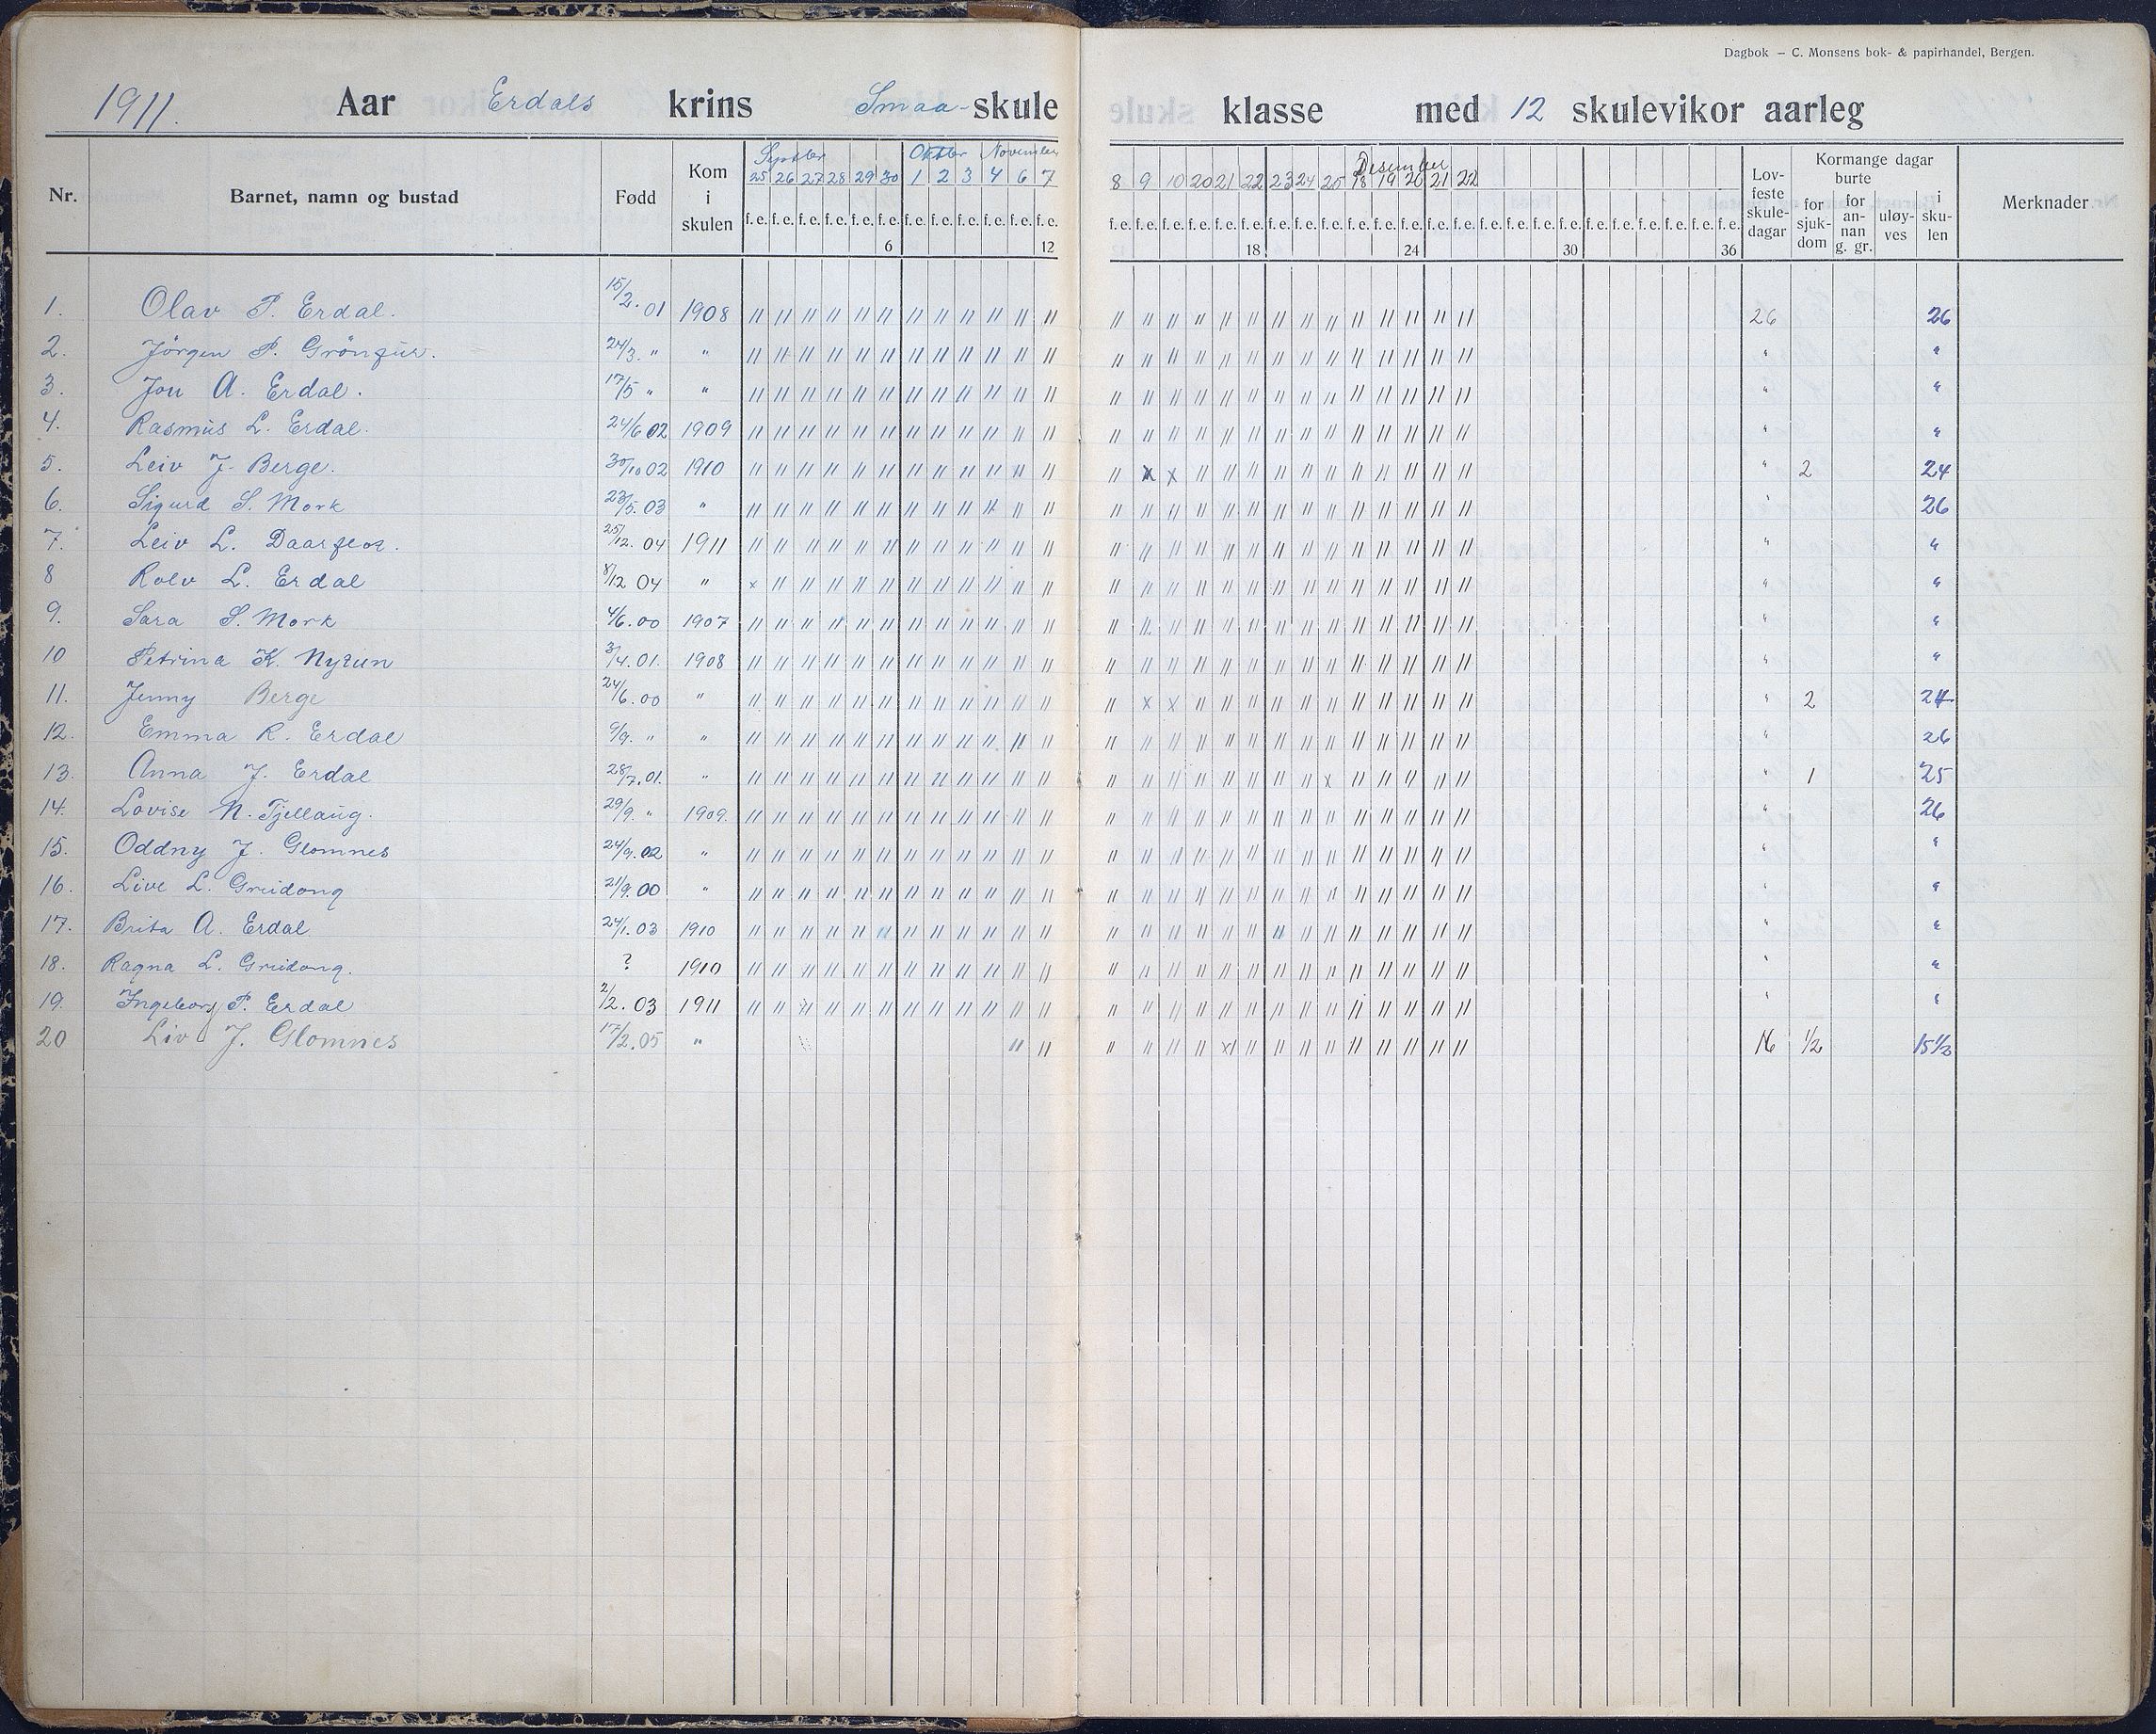 Dagbok – C. Monsens bok- & papirhandel, Bergen.
1911. Aar Erdals krins Smaa- skule klasse med 12 skulevikor aarleg
Nr. Barnet, namn og bustad Fødd Kom i skulen Lovfeste skuledagar Kormange dagar burte for sjukdom for annan g. gr. uløyves i skulen Merknader
Septbr Oktbr November Desember
25 26 27 28 29 30 1 2 3 4 6 7 8 9 10 20 21 22 23 24 25 18 19 20 21 22
f. e. f. e. f. e. f. e. f. e. f. e. f. e. f. e. f. e. f. e. f. e. f. e. f. e. f. e. f. e. f. e. f. e. f. e. f. e. f. e. f. e. f. e. f. e. f. e. f. e. f. e. f. e. f. e. f. e. f. e. f. e. f. e. f. e. f. e. f. e. f. e.
6 12 18 24 30 36
1. Olav P. Erdal. 15/2.01 1908 26 26
2. Jörgen P. " 24/3. " " " "
3. Jon A. Erdal. 17/5 " " " "
4. Rasmus L. Erdal. 24/6 02 1909 " "
5. Leiv J. Berge. 30/10 02 1910 " 2 24
6. Sigurd S. Mork 23/5.03 " " 26
7. Leiv L. 25/12. 04 1911 " "
8 Rolv L. Erdal 8/12 04 " " "
9. Sara S. Mork 4/6.00 1907 " "
10 Petrina K. 3/4.01. 1908 " "
11. Jenny Berge 24/6.00 " " 2 24
12. Emma R. Erdal 9/9. " " " 26
13. Anna J. Erdal 28/7.01. " " 1 25
14. Lovise N. Tjellaug. 29/9. " 1909. " 26
15. Oddny J. Glomnes 24/9.02 " " "
16. Live L. Greidong 21/9.00 " " "
17. Brita A. Erdal 24/1.03 1910 " "
18. Ragna L. Greidong. ? 1910 " "
19. Ingeborg P. Erdal 2/2.03 1911 " "
20 Liv J. Glomnes 17/2.05 " 16 1/2 15 1/2